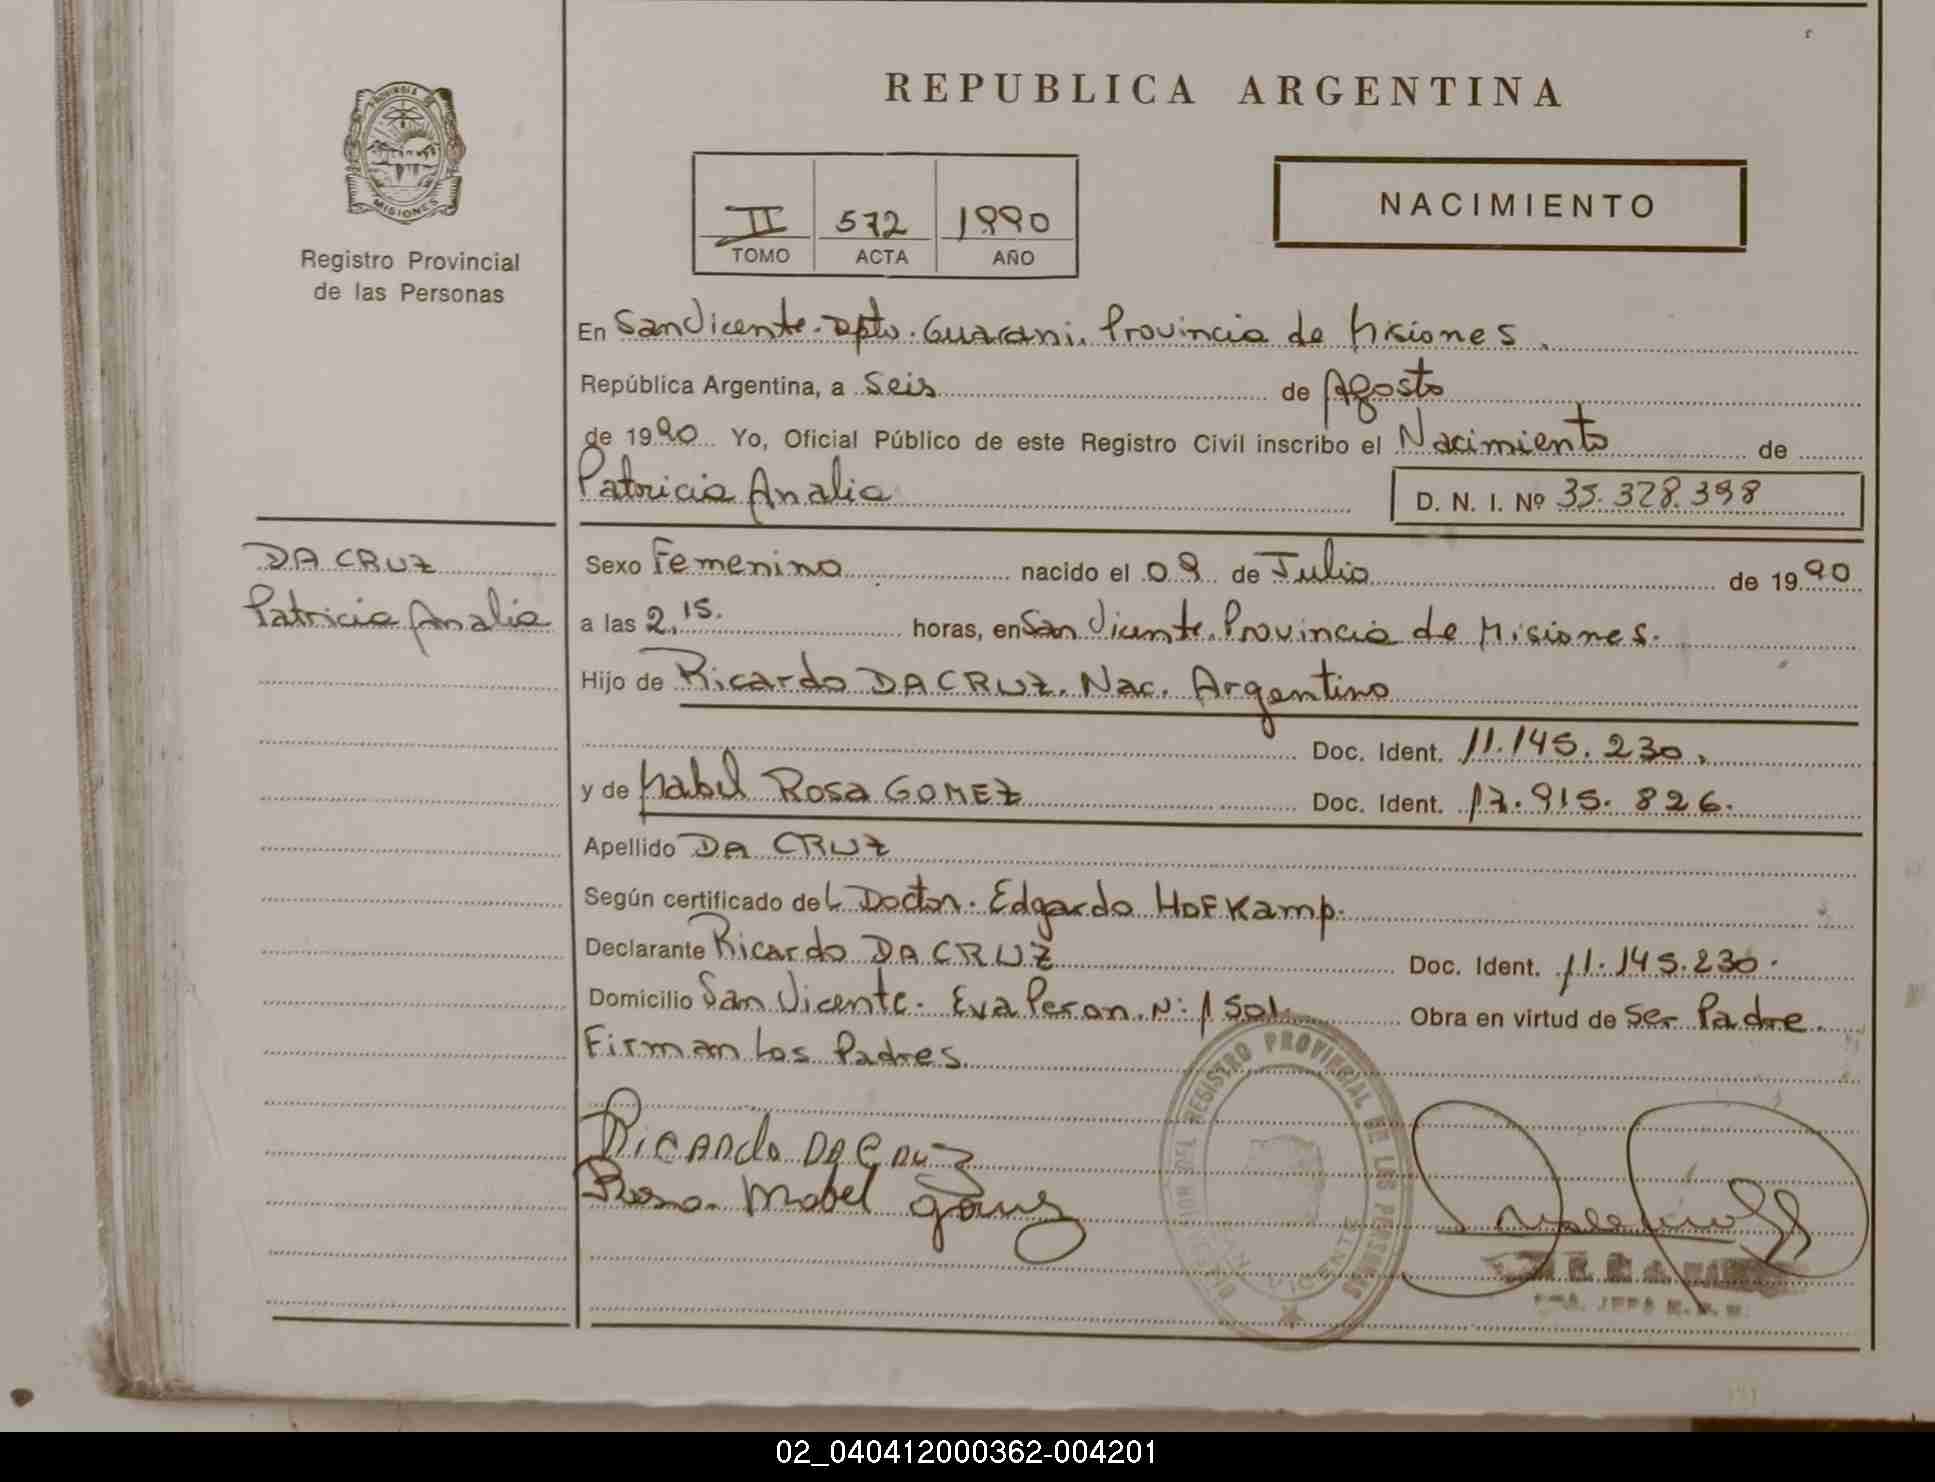 REPUBLICA ARGENTINA
PROVINCIA DE
MISIONES
Registro Provincial
de las Personas
II 572 1990
TOMO ACTA AÑO
NACIMIENTO
En San Vicente. Dpto. Guarani. Provincia de Misiones.
República Argentina, a Seis de Agosto
de 1990 Yo, Oficial Público de este Registro Civil inscribo el Nacimiento de
Patricia Analia D. N. I. Nº 35.328.398
DA CRUZ
Patricia Analia
Sexo Femenino nacido el 09 de Julio de 1990
a las 2,15. horas, en San Vicente. Provincia de Misiones.
Hijo de Ricardo DA CRUZ. Nac. Argentino
Doc. Ident. 11.145.230.
y de Mabel Rosa GOMEZ Doc. Ident. 17.915.826.
Apellido DA CRUZ
Según certificado del Doctor. Edgardo HOFKamp.
Declarante Ricardo DA CRUZ Doc. Ident. 11.145.230.
Domicilio San Vicente. Eva Peron. N: 1501 Obra en virtud de Ser Padre.
Firman Los Padres.
Ricardo DA Cruz
Rosa Mabel Gomez
DEL REGISTRO PROVINCIAL DE LAS PERSONAS
VICENTE
02_040412000362-004201